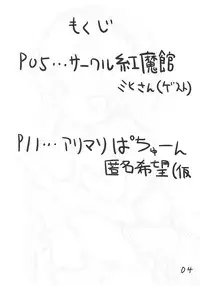 もくじ
P05…サークル紅魔館
ミヒさん(ゲスト)
P11…アリマリぱちゅーん
匿名希望(仮
04